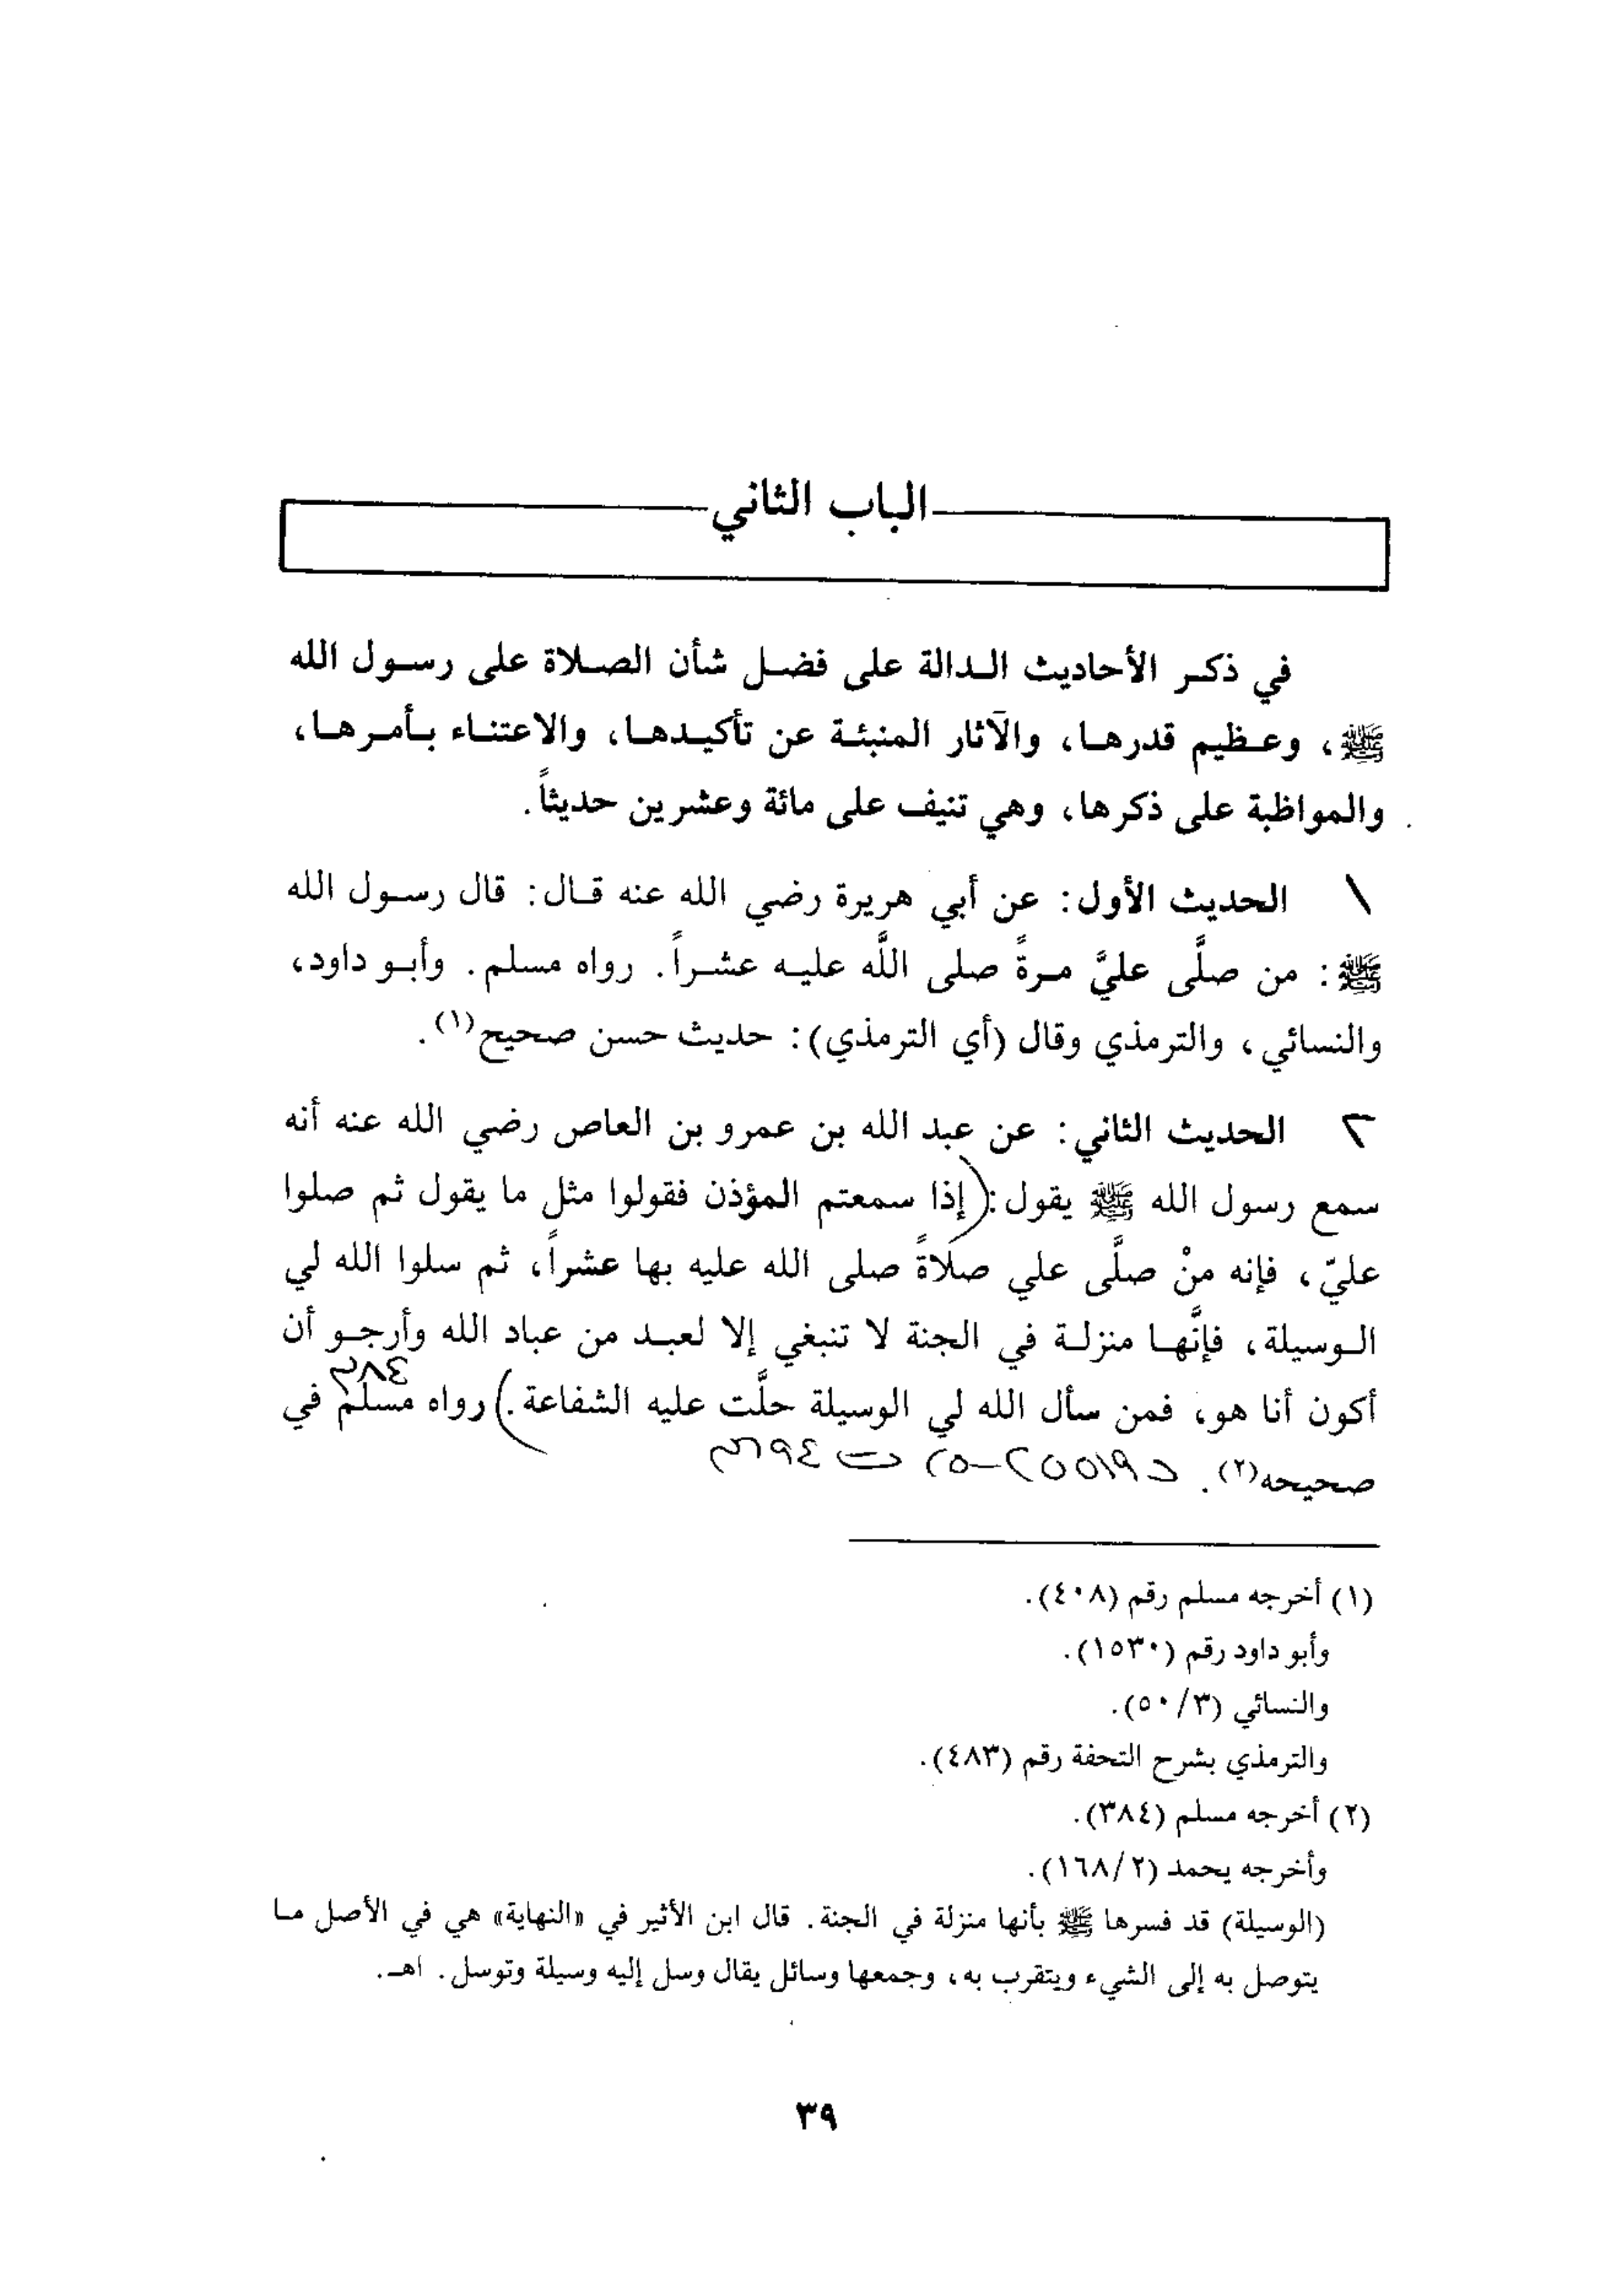 الباب الثاني
في ذكر الأحاديث الدالة على فضل شأن الصلاة على رسول الله
ﷺ، وعظيم قدرها، والآثار المنبئة عن تأكيدها، والاعتناء بأمرها،
والمواظبة على ذكرها، وهي تنيف على مائة وعشرين حديثاً.
١ الحديث الأول: عن أبي هريرة رضي الله عنه قال: قال رسول الله
ﷺ: من صلَّى عليَّ مرةً صلى اللَّه عليه عشراً. رواه مسلم. وأبو داود،
والنسائي، والترمذي وقال (أي الترمذي): حديث حسن صحيح(١).
٢ الحديث الثاني: عن عبد الله بن عمرو بن العاص رضي الله عنه أنه
سمع رسول الله ﷺ يقول: (إذا سمعتم المؤذن فقولوا مثل ما يقول ثم صلوا
عليّ، فإنه منْ صلَّى علي صلاةً صلى الله عليه بها عشراً، ثم سلوا الله لي
الوسيلة، فإنَّها منزلة في الجنة لا تنبغي إلا لعبد من عباد الله وأرجو أن
٣٨٤
أكون أنا هو، فمن سأل الله لي الوسيلة حلَّت عليه الشفاعة.) رواه مسلم في
صحيحه(٢). ت ٣٦٩٤
(١) أخرجه مسلم رقم (٤٠٨).
وأبو داود رقم (١٥٣٠).
والنسائي (٥٠/٣).
والترمذي بشرح التحفة رقم (٤٨٣).
(٢) أخرجه مسلم (٣٨٤).
وأخرجه يحمد (١٦٨/٢).
(الوسيلة) قد فسرها ﷺ بأنها منزلة في الجنة. قال ابن الأثير في «النهاية» هي في الأصل ما
يتوصل به إلى الشيء ويتقرب به، وجمعها وسائل يقال وسل إليه وسيلة وتوسل. اهـ.
٣٩